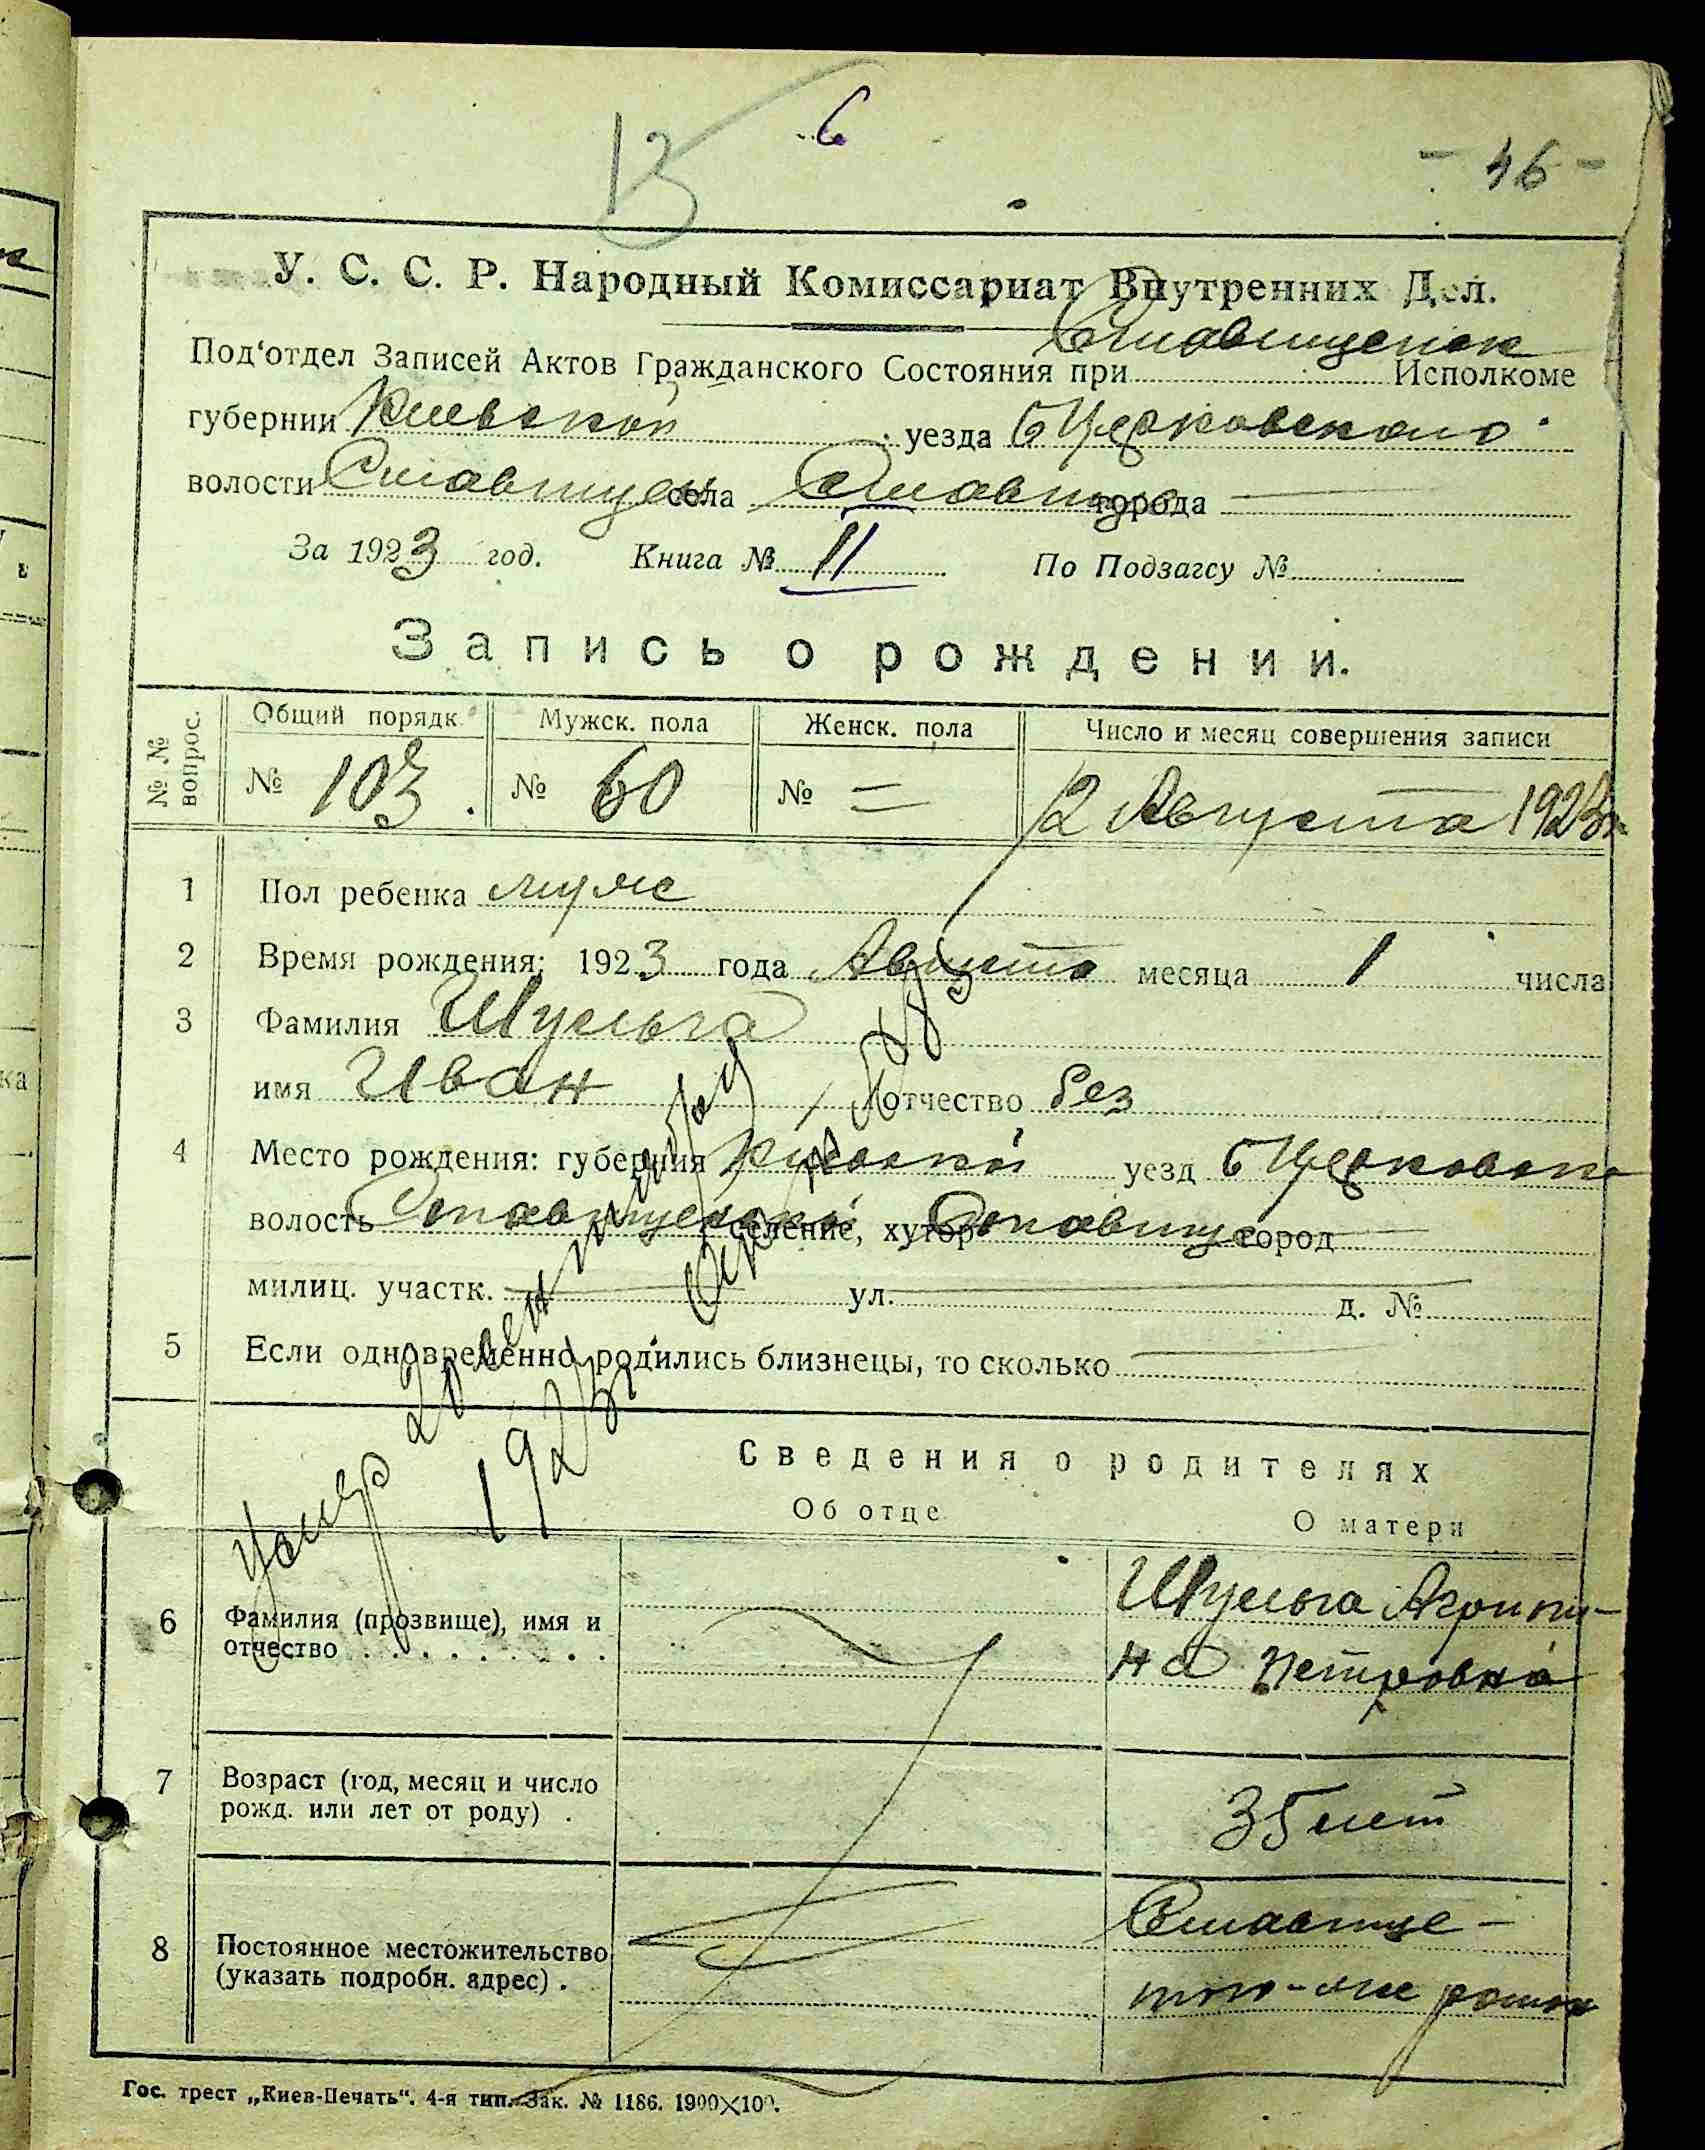 6
13
- 46 -
У. С. С. Р. Народный Комиссариат Внутренних Дел.
Под'отдел Записей Актов Гражданского Состояния при Ставищенск Исполкоме
губернии Киевской уезда Б Церковского
волости Ставищен села Ставище города —
За 1923 год. Книга № II По Подзагсу №
Запись о рождении.
№ № вопрос. Общий порядк. Мужск. пола Женск. пола Число и месяц совершения записи
№ 103. № 60 № = 2 Августа 1923г
1 Пол ребенка муж
2 Время рождения: 1923 года Августа месяца 1 числа
3 Фамилия Шульга
имя Иван отчество без
4 Место рождения: губерния Киевской уезд Б Церковск
волость Ставищенской селение, хутор Ставище город —
милиц. участк. — ул. — д. №
5 Если одновременно родились близнецы, то сколько —
умер 20 сентября
1923 г.
Сведения о родителях
Об отце О матери
6 Фамилия (прозвище), имя и отчество . . . . . . . . . Шульга Агрипи-
на Петровна
7 Возраст (год, месяц и число
рожд. или лет от роду) . 35 лет
8 Постоянное местожительство
(указать подробн. адрес) . Ставище -
того-же
Гос. трест „Киев-Печать“. 4-я тип. Зак. № 1186. 1900×100.